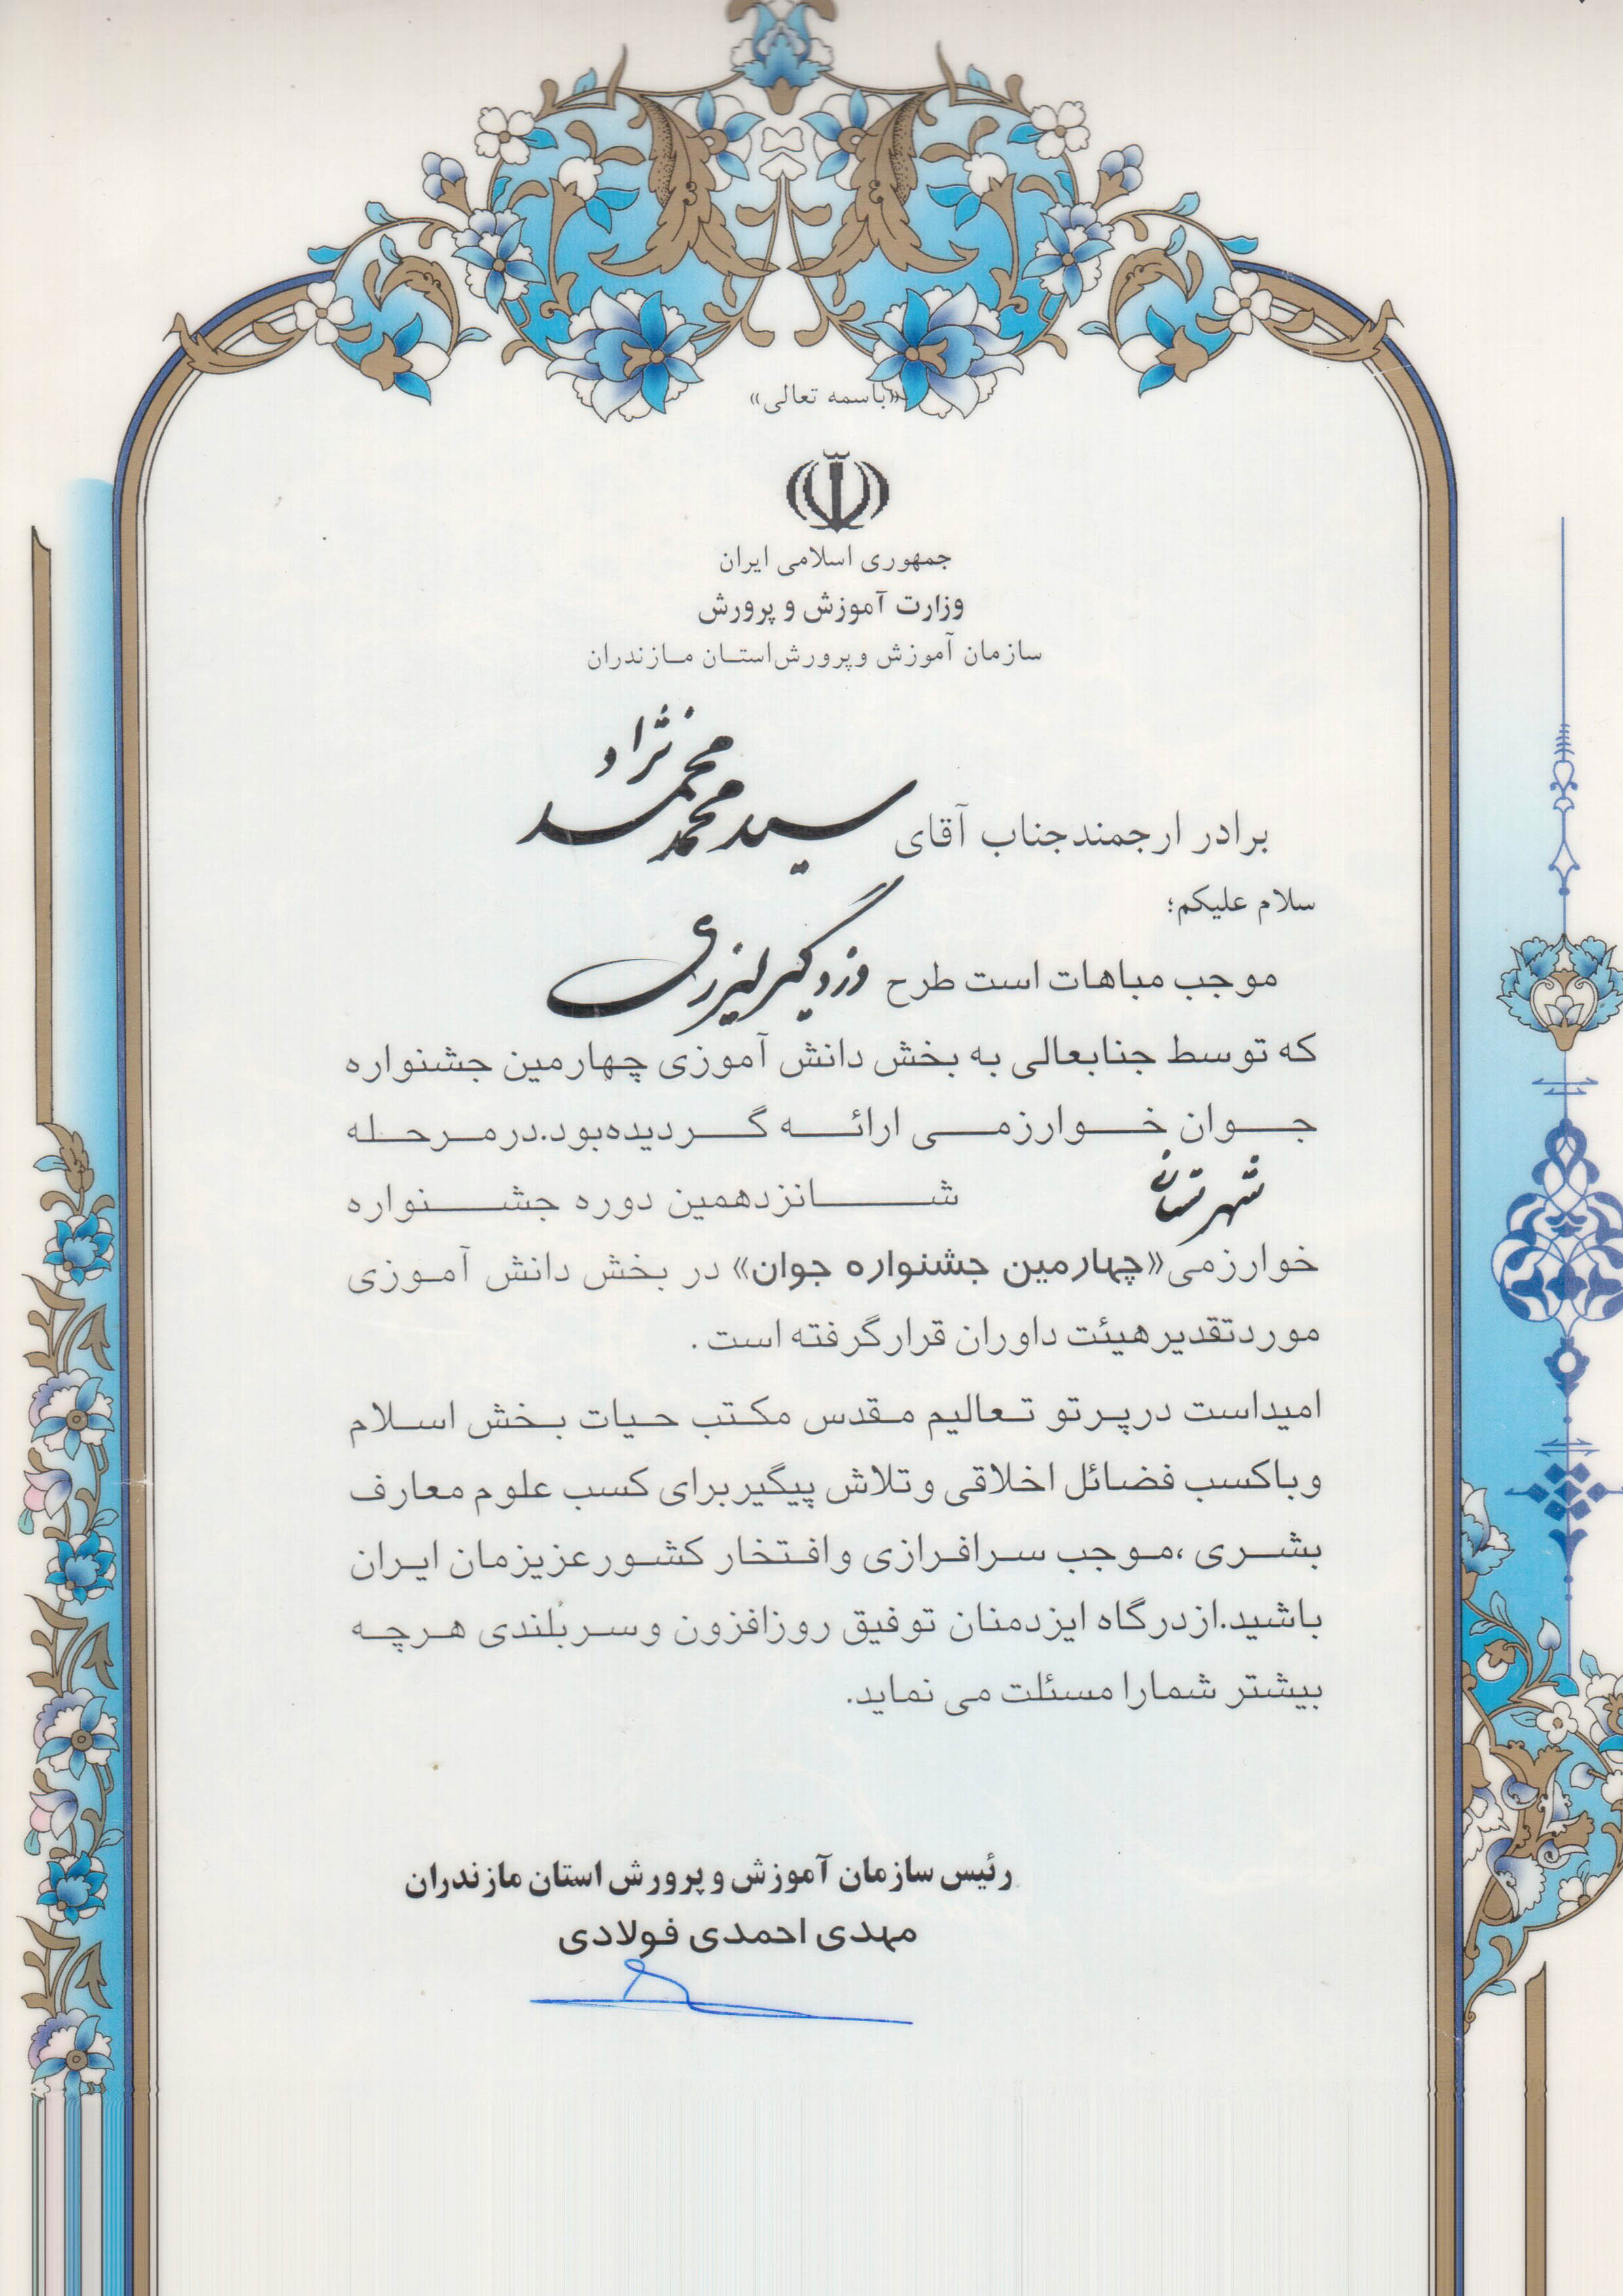 «باسمه تعالی»
جمهوری اسلامی ایران
وزارت آموزش و پرورش
سازمان آموزش و پرورش استان مازندران
برادر ارجمند جناب آقای سید محمد محمد نژاد
سلام علیکم؛
موجب مباهات است طرح دزدگیر لیزری
که توسط جنابعالی به بخش دانش آموزی چهارمین جشنواره
جوان خوارزمی ارائه گردیده بود.در مرحله
شهرستان شانزدهمین دوره جشنواره
خوارزمی «چهارمین جشنواره جوان» در بخش دانش آموزی
مورد تقدیر هیئت داوران قرار گرفته است .
امید است در پرتو تعالیم مقدس مکتب حیات بخش اسلام
و با کسب فضائل اخلاقی و تلاش پیگیر برای کسب علوم معارف
بشری ،موجب سرافرازی و افتخار کشور عزیزمان ایران
باشید.از درگاه ایزد منان توفیق روزافزون و سر بُلندی هرچه
بیشتر شما را مسئلت می نماید.
رئیس سازمان آموزش و پرورش استان مازندران
مهدی احمدی فولادی